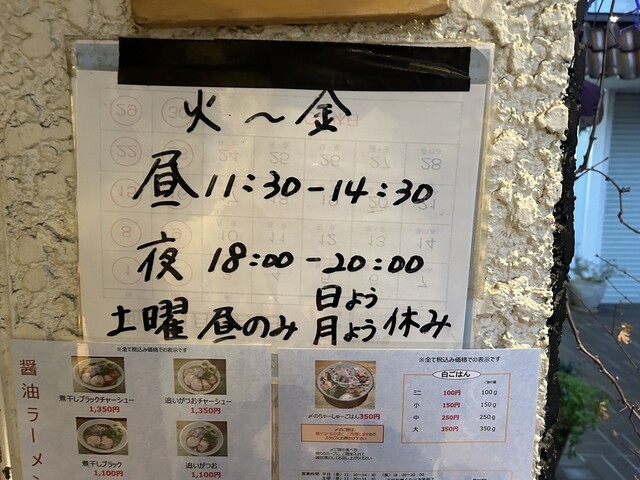 火～金
昼11:30-14:30
夜 18:00-20:00
土曜 昼のみ 日よう 月よう 休み
※全て税込み価格での表示です
醤油ラーメン
煮干しブラックチャーシュー
1,350円
追いがつおチャーシュー
1,350円
煮干しブラック
1,100円
追いがつお
1,100円
※全て税込み価格での表示です
〆のちゃーしゅーごはん350円
白ごはん
ミニ 100円 100g
小 150円 150g
中 250円 250g
大 350円 350g